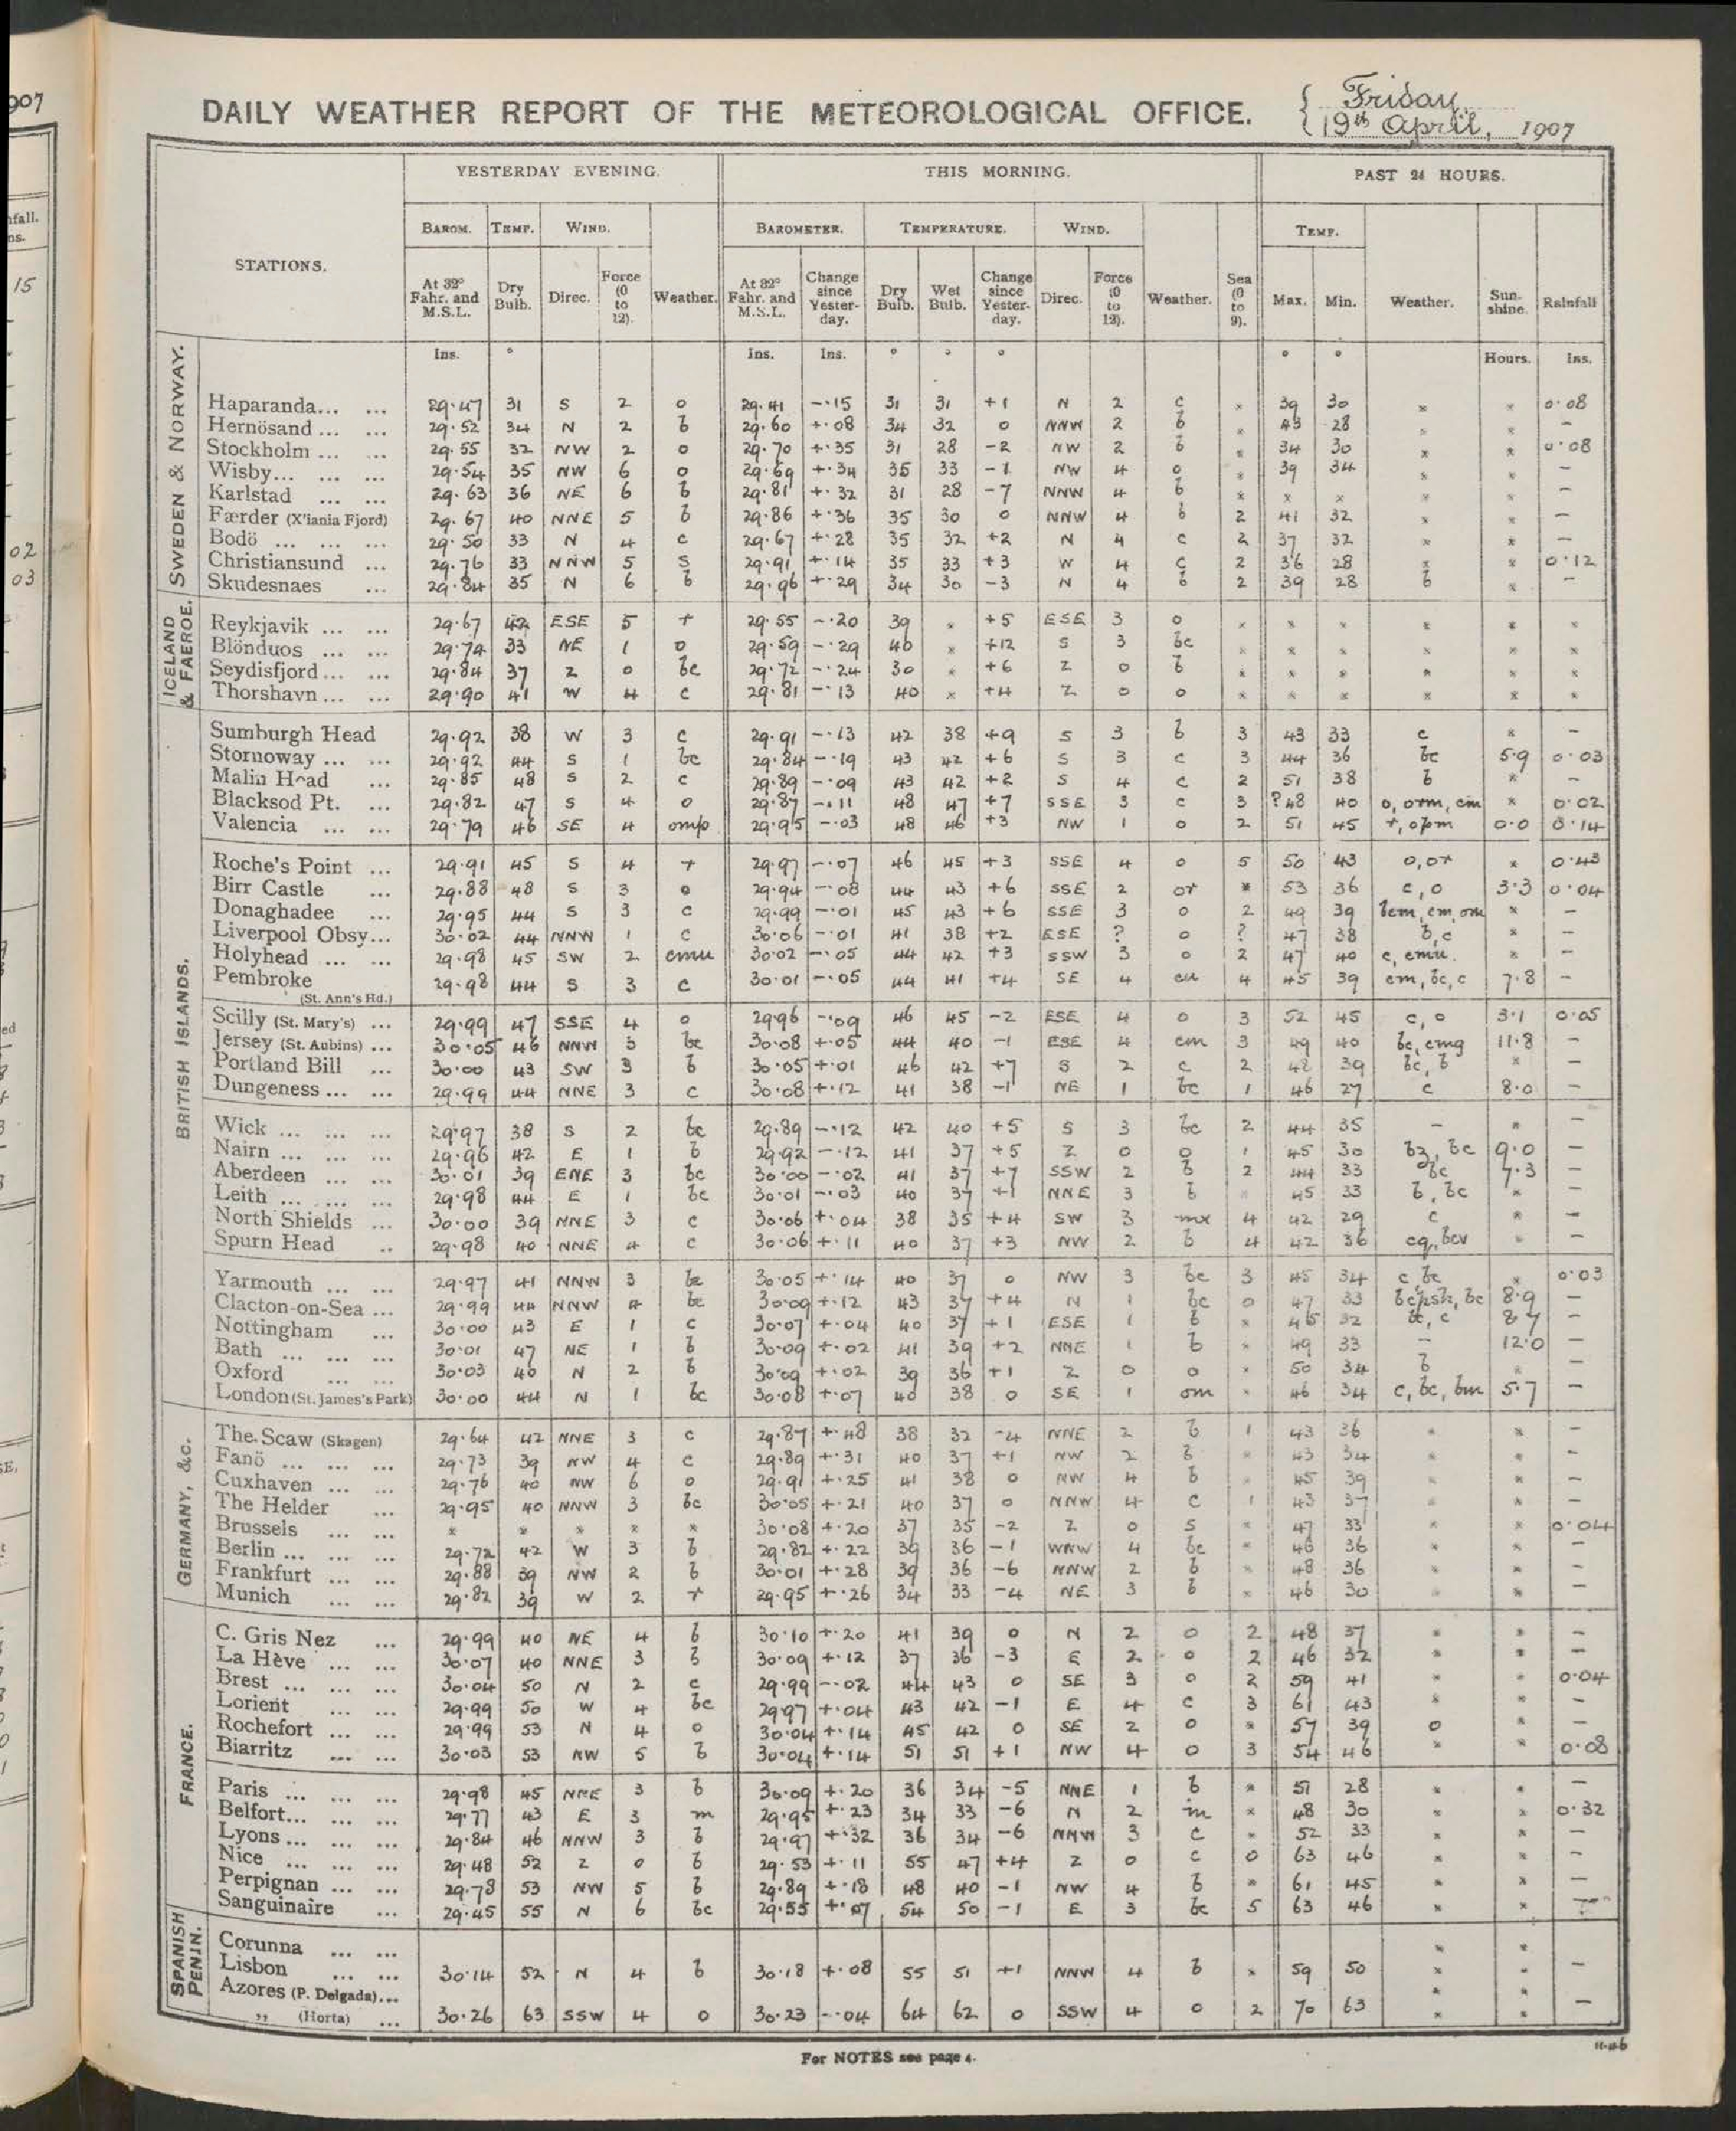 907
DAILY WEATHER REPORT OF THE METEOROLOGICAL OFFICE.
Friday,
19th April, 1907
STATIONS. YESTERDAY EVENING. THIS MORNING. PAST 24 HOURS.
BAROM. TEMP. WIND. BAROMETER. TEMPERATURE. WIND. TEMP.
At 32° Fahr. and M.S.L. Dry Bulb. Direc. Force (0 to 12). Weather. At 32° Fahr. and M.S.L. Change since Yester-day. Dry Bulb. Wet Bulb. Change since Yester-day. Direc. Force (0 to 12). Weather. Sea (0 to 9). Max. Min. Weather. Sun-shine. Rainfall
Ins. ° Ins. Ins. ° ° ° ° ° Hours. Ins.
SWEDEN & NORWAY.
Haparanda... ... 29.47 31 S 2 o 29.41 -.15 31 31 +1 N 2 c × 39 30 × × 0.08
Hernösand ... ... 29.52 34 N 2 b 29.60 +.08 34 32 0 NNW 2 b × 43 28 × × -
Stockholm ... ... 29.55 32 NW 2 o 29.70 +.35 31 28 -2 NW 2 b × 34 30 × × 0.08
Wisby... ... ... 29.54 35 NW 6 o 29.69 +.34 35 33 -1 NW 4 o × 39 34 × × -
Karlstad ... ... 29.63 36 NE 6 b 29.81 +.32 31 28 -7 NNW 4 b × × × × × -
Færder (X'iania Fjord) 29.67 40 NNE 5 b 29.86 +.36 35 30 0 NNW 4 b 2 41 32 × × -
Bodö ... ... ... 29.50 33 N 4 c 29.67 +.28 35 32 +2 N 4 c 2 37 32 × × -
Christiansund ... 29.76 33 NNW 5 s 29.91 +.14 35 33 +3 W 4 c 2 36 28 × × 0.12
Skudesnaes ... 29.84 35 N 6 b 29.96 +.29 34 30 -3 N 4 b 2 39 28 b × -
ICELAND & FAEROE.
Reykjavik ... ... 29.67 42 ESE 5 r 29.55 -.20 39 × +5 ESE 3 o × × × × × ×
Blönduos ... ... 29.74 33 NE 1 o 29.59 -.29 40 × +12 S 3 bc × × × × × ×
Seydisfjord... ... 29.84 37 Z 0 bc 29.72 -.24 30 × +6 Z 0 b × × × × × ×
Thorshavn... ... 29.90 41 W 4 c 29.81 -.13 40 × +4 Z 0 o × × × × × ×
BRITISH ISLANDS.
Sumburgh Head 29.92 38 W 3 c 29.91 -.13 42 38 +9 S 3 b 3 43 33 c × -
Stornoway ... ... 29.92 44 S 1 bc 29.84 -.19 43 42 +6 S 3 c 3 44 36 bc 5.9 0.03
Malin Head ... 29.85 48 S 2 c 29.89 -.09 43 42 +2 S 4 c 2 51 38 b × -
Blacksod Pt. ... 29.82 47 S 4 o 29.87 -.11 48 47 +7 SSE 3 c 3 ?48 40 o, orm, cm × 0.02
Valencia ... ... 29.79 46 SE 4 omp 29.95 -.03 48 46 +3 NW 1 o 2 51 45 r, opm 0.0 0.14
Roche's Point ... 29.91 45 S 4 r 29.97 -.07 46 45 +3 SSE 4 o 5 50 43 o, or × 0.43
Birr Castle ... 29.88 48 S 3 o 29.94 -.08 44 43 +6 SSE 2 or × 53 36 c, o 3.3 0.04
Donaghadee ... 29.95 44 S 3 c 29.99 -.01 45 43 +6 SSE 3 o 2 49 39 bcm, cm, om × -
Liverpool Obsy... 30.02 44 NNW 1 c 30.06 -.01 41 38 +2 ESE ? o ? 47 38 b, c × -
Holyhead ... ... 29.98 45 SW 2 cmu 30.02 -.05 44 42 +3 SSW 3 o 2 47 40 c, cmu. × -
Pembroke (St. Ann's Hd.) 29.98 44 S 3 c 30.01 -.05 44 41 +4 SE 4 cu 4 45 39 cm, bc, c 7.8 -
Scilly (St. Mary's) ... 29.99 47 SSE 4 o 29.96 -.09 46 45 -2 ESE 4 o 3 52 45 c, o 3.1 0.05
Jersey (St. Aubins) ... 30.05 46 NNW 3 bc 30.08 +.05 44 40 -1 ESE 4 cm 3 49 40 bc, cmg 11.8 -
Portland Bill ... 30.00 43 SW 3 b 30.05 +.01 46 42 +7 S 2 c 2 48 39 bc, b × -
Dungeness ... ... 29.99 44 NNE 3 c 30.08 +.12 41 38 -1 NE 1 bc 1 46 27 c 8.0 -
Wick ... ... ... 29.97 38 S 2 bc 29.89 -.12 42 40 +5 S 3 bc 2 44 35 - × -
Nairn ... ... ... 29.96 42 E 1 b 29.92 -.12 41 37 +5 Z 0 o 1 45 30 bz, bc 9.0 -
Aberdeen ... ... 30.01 39 ENE 3 bc 30.00 -.02 41 37 +7 SSW 2 b 2 44 33 bc 7.3 -
Leith ... ... ... 29.98 44 E 1 bc 30.01 -.03 40 37 +1 NNE 3 b × 45 33 b, bc × -
North Shields ... 30.00 39 NNE 3 c 30.06 +.04 38 35 +4 SW 3 mx 4 42 29 c × -
Spurn Head .. 29.98 40 NNE 4 c 30.06 +.11 40 37 +3 NW 2 b 4 42 36 cq, bcv × -
Yarmouth ... ... 29.97 41 NNW 3 bc 30.05 +.14 40 37 0 NW 3 bc 3 45 34 c, bc × 0.03
Clacton-on-Sea ... 29.99 44 NNW 4 bc 30.09 +.12 43 37 +4 N 1 bc 0 47 33 bcpsh, bc 8.9 -
Nottingham ... 30.00 43 E 1 c 30.07 +.04 40 37 +1 ESE 1 b × 45 32 bc, c 8.7 -
Bath ... ... ... 30.01 47 NE 1 b 30.09 +.02 41 39 +2 NNE 1 b × 49 33 - 12.0 -
Oxford ... ... 30.03 40 N 2 b 30.09 +.02 39 36 +1 Z 0 o × 50 34 b × -
London (St. James's Park) 30.00 44 N 1 bc 30.08 +.07 40 38 0 SE 1 om × 46 34 c, bc, bm 5.7 -
GERMANY, &c.
The Scaw (Skagen) 29.64 42 NNE 3 c 29.87 +.48 38 32 -4 NNE 2 b 1 43 36 × × -
Fanö ... ... ... 29.73 39 NW 4 c 29.89 +.31 40 37 +1 NW 2 b × 43 34 × × -
Cuxhaven ... ... 29.76 40 NW 6 o 29.91 +.25 41 38 0 NW 4 b × 45 39 × × -
The Helder ... 29.95 40 NNW 3 bc 30.05 +.21 40 37 0 NNW 4 c 1 43 37 × × -
Brussels ... ... × × × × × 30.08 +.20 37 35 -2 Z 0 s × 47 33 × × 0.04
Berlin ... ... ... 29.72 42 W 3 b 29.82 +.22 39 36 -1 WNW 4 bc × 46 36 × × -
Frankfurt ... ... 29.88 39 NW 2 b 30.01 +.28 39 36 -6 NNW 2 b × 48 36 × × -
Munich ... ... 29.82 39 W 2 r 29.95 +.26 34 33 -4 NE 3 b × 46 30 × × -
FRANCE.
C. Gris Nez ... 29.99 40 NE 4 b 30.10 +.20 41 39 0 N 2 o 2 48 37 × × -
La Hève ... ... 30.07 40 NNE 3 b 30.09 +.12 37 36 -3 E 2 o 2 46 32 × × -
Brest ... ... ... 30.04 50 N 2 c 29.99 -.02 44 43 0 SE 3 o 2 59 41 × × 0.04
Lorient ... ... 29.99 50 W 4 bc 29.97 +.04 43 42 -1 E 4 c 3 61 43 × × -
Rochefort ... ... 29.99 53 N 4 o 30.04 +.14 45 42 0 SE 2 o × 57 39 o × -
Biarritz ... ... 30.03 53 NW 5 b 30.04 +.14 51 51 +1 NW 4 o 3 54 46 × × 0.08
Paris ... ... ... 29.98 45 NNE 3 b 30.09 +.20 36 34 -5 NNE 1 b × 51 28 × × -
Belfort... ... ... 29.77 43 E 3 m 29.95 +.23 34 33 -6 N 2 m × 48 30 × × 0.32
Lyons ... ... ... 29.84 46 NNW 3 b 29.97 +.32 36 34 -6 NNW 3 c × 52 33 × × -
Nice ... ... ... 29.48 52 Z 0 b 29.53 +.11 55 47 +4 Z 0 c 0 63 46 × × -
Perpignan ... ... 29.78 53 NW 5 b 29.89 +.18 48 40 -1 NW 4 b × 61 45 × × -
Sanguinaire ... 29.45 55 N 6 bc 29.55 +.07 54 50 -1 E 3 bc 5 63 46 × × -
SPANISH PENIN.
Corunna ... ... × ×
Lisbon ... ... 30.14 52 N 4 b 30.18 +.08 55 51 +1 NNW 4 b × 59 50 × × -
Azores (P. Delgada)... × ×
„ (Horta) ... 30.26 63 SSW 4 o 30.23 -.04 64 62 0 SSW 4 o 2 70 63 × × -
For NOTES see page 4.